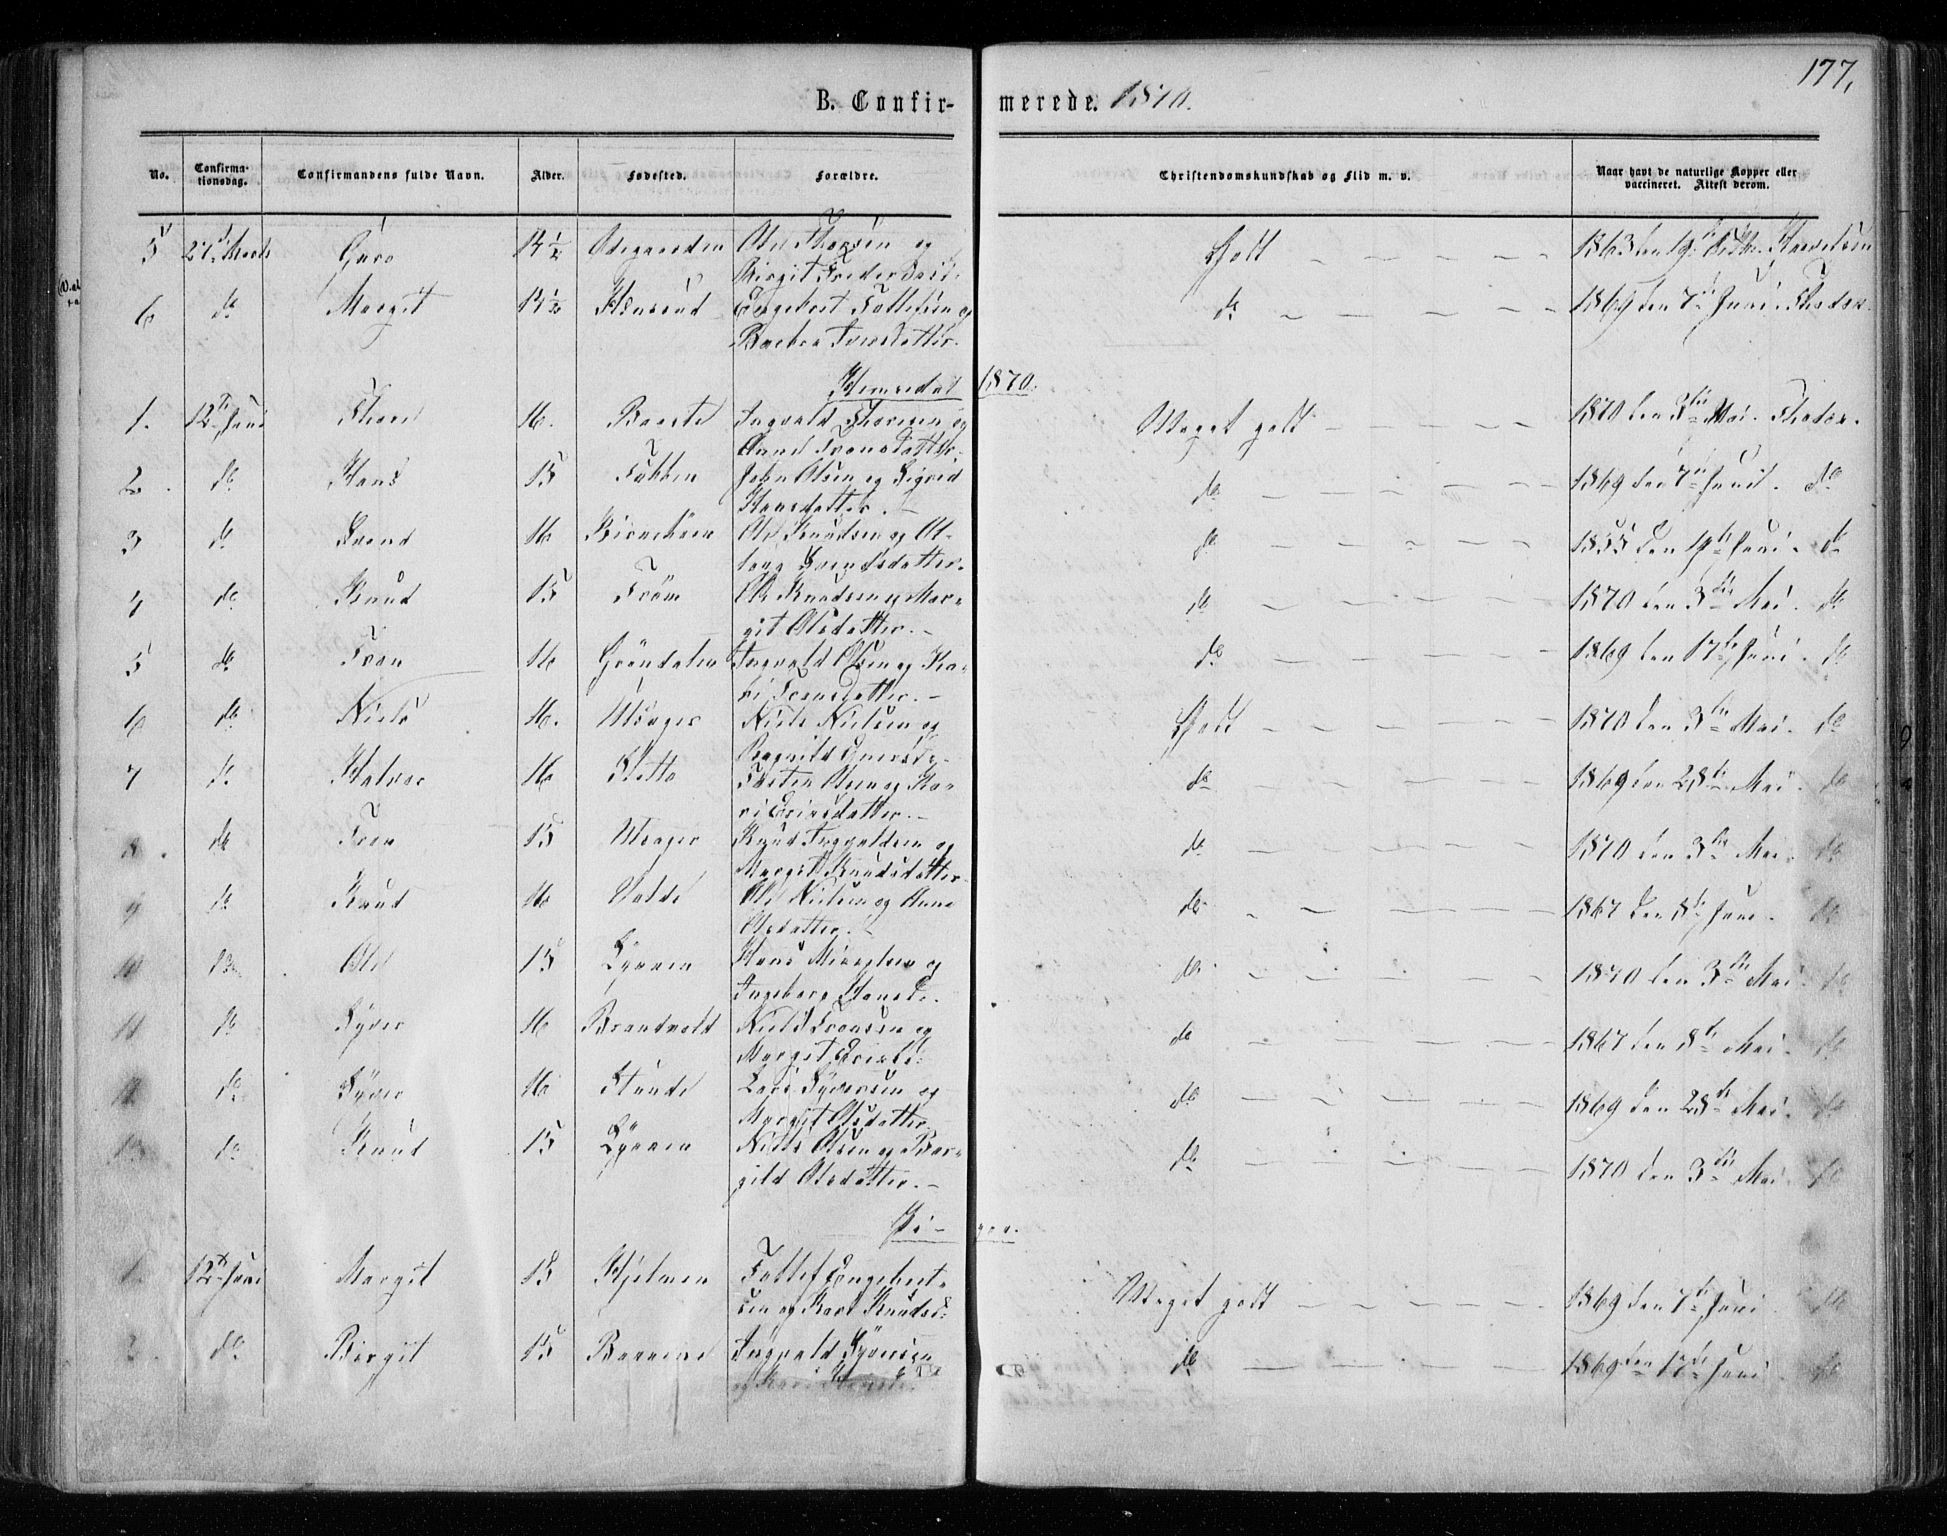 177,
B. Confirmerede. 1870.
No. Confirma-tionsdag. Confirmandens fulde Navn. Alder. Fødested. Forældre. Christendomskundskab og Flid m. v. Naar havt de naturlige Kopper eller vaccineret. Attest derom.
5 27de Marts Guro 15 1/2 Odegaarden Ole Thorsen og Godt 1863 den 19
Birgit
6 do Margit 15 1/2 Engebret Tollefsen og do 1869 den 7de Juni.
Barbro Iversdatter.
Hemsedal 1870.
1. 12te Juni Thore 16. Ingvald Thorsen og Meget godt 1870 den 3die Mai.
Anne Tronsdatter.
2. do Hans 15 John Olsen og Sigrid do 1869 den 7de Juni. do
Hansdatter.
3 do Svend 16 Ole Knudsen og do 1855 den 19de Juni. do
Svendsdatter.
4 do Knud 15 Trøm Ole Knudsen og Mar- do 1870 den 3die Mai. do
git Olsdatter.
5 do Tron 16 Grøndalen Ingvald Olsen og Ka- do 1869 den 17de Juni. do
ri Tronsdatter.
6 do Niels 16. Ulsager Niels Nielsen og Godt 1870 den 3die Mai. do
Ragnild
7 do Halvor 16 Flette Torsten Olsen og Ka- do 1869 den 28de Mai do
ri Eriksdatter.
8. do Tron 15 Ulsager Knud Ingvaldsen og do 1870 den 3die Mai. do
Margit Knudsdatter
9 do Knud 16 Ole Nielsen og Anne do 1867 den 8de Juni. do
Olsdatter.
10 do Ole 15 Hans Mikkelsen og do 1870 den 3die Mai. do
Ingeborg Hansd.
11 do Syver 16 Brandvold Niels Tronsen og do 1867 den 8de Mai. do
Margit Eriksd.
12 do Syver 16 Lars Syversen og do 1869 den 28de Mai. do
Margit Olsdatter
13 do Knud 15 Niels Olsen og Bar- do 1870 den 3die Mai do
gild Olsdatter.
Piger.
1. 12te Juni Margit 15 Hjelmen Tollef Engebret- Meget godt 1869 den 7de Juni do
sen og Kari Knudsd.
2. do Birgit 15 Ingvald Syversen do 1869 den 17de Juni do
og Kari